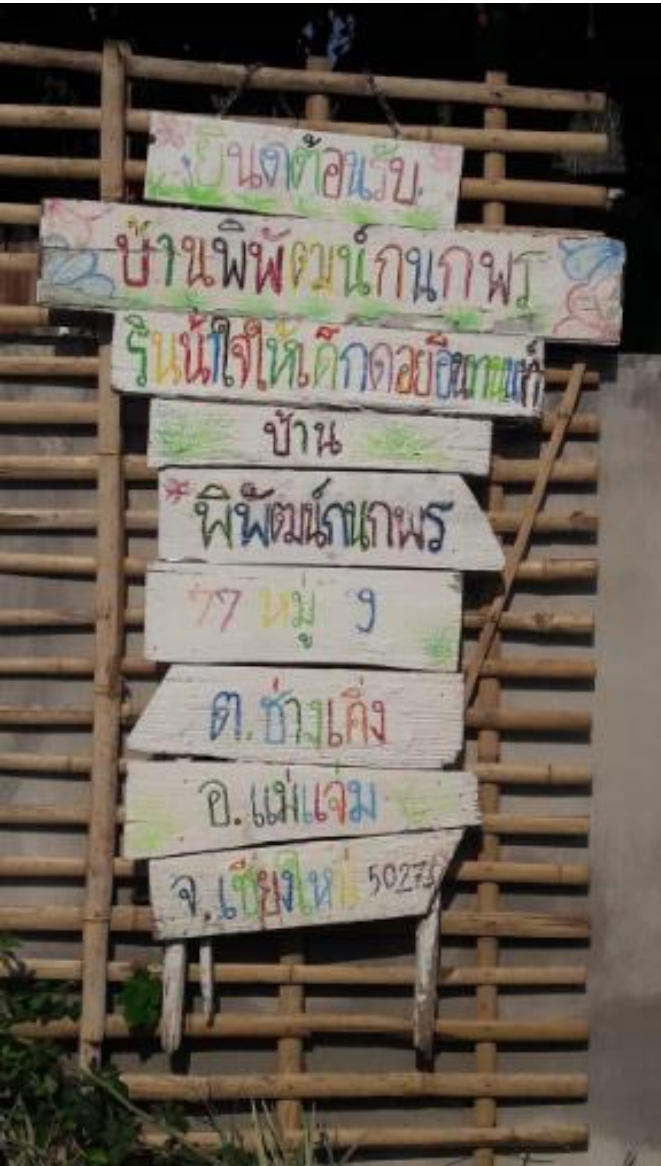 ยินดีต้อนรับ
บ้านพิพัฒน์กนกพร
รินน้ำใจให้เด็กดอยอินทนนท์
บ้าน
พิพัฒน์กนกพร
77 หมู่ 9
ต.ช่างเคิ่ง
อ.แม่แจ่ม
จ.เชียงใหม่ 50270